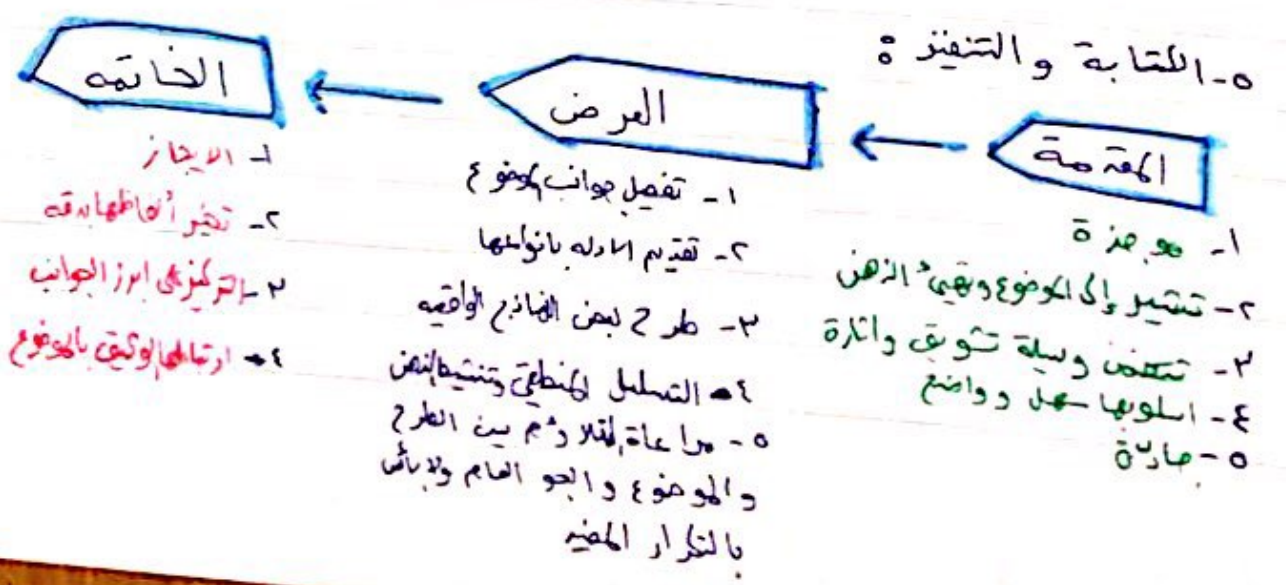 ٥- الكتابة و التنفيذ :
المقدمة
١- موجزة
٢- تشير إلى الموضوع وتهيئ الذهن
٣- تتضمن وسيلة تشويق واثارة
٤- اسلوبها سهل وواضح
٥- جاذبة
العرض
١- تفصل جوانب الموضوع
٢- تقديم الادله بانواعها
٣- طرح بعض النماذج الواقعيه
٤- التسلسل المنطقي وتنشيط الذهن
٥- مراعاة التلاؤم بين الطرح
والموضوع والجو العام ولابأس
بالتكرار المفيد
الخاتمه
١- الايجاز
٢- تخير ألفاظها بدقه
٣- التركيز على ابرز الجوانب
٤- ارتباطها الوثيق بالموضوع